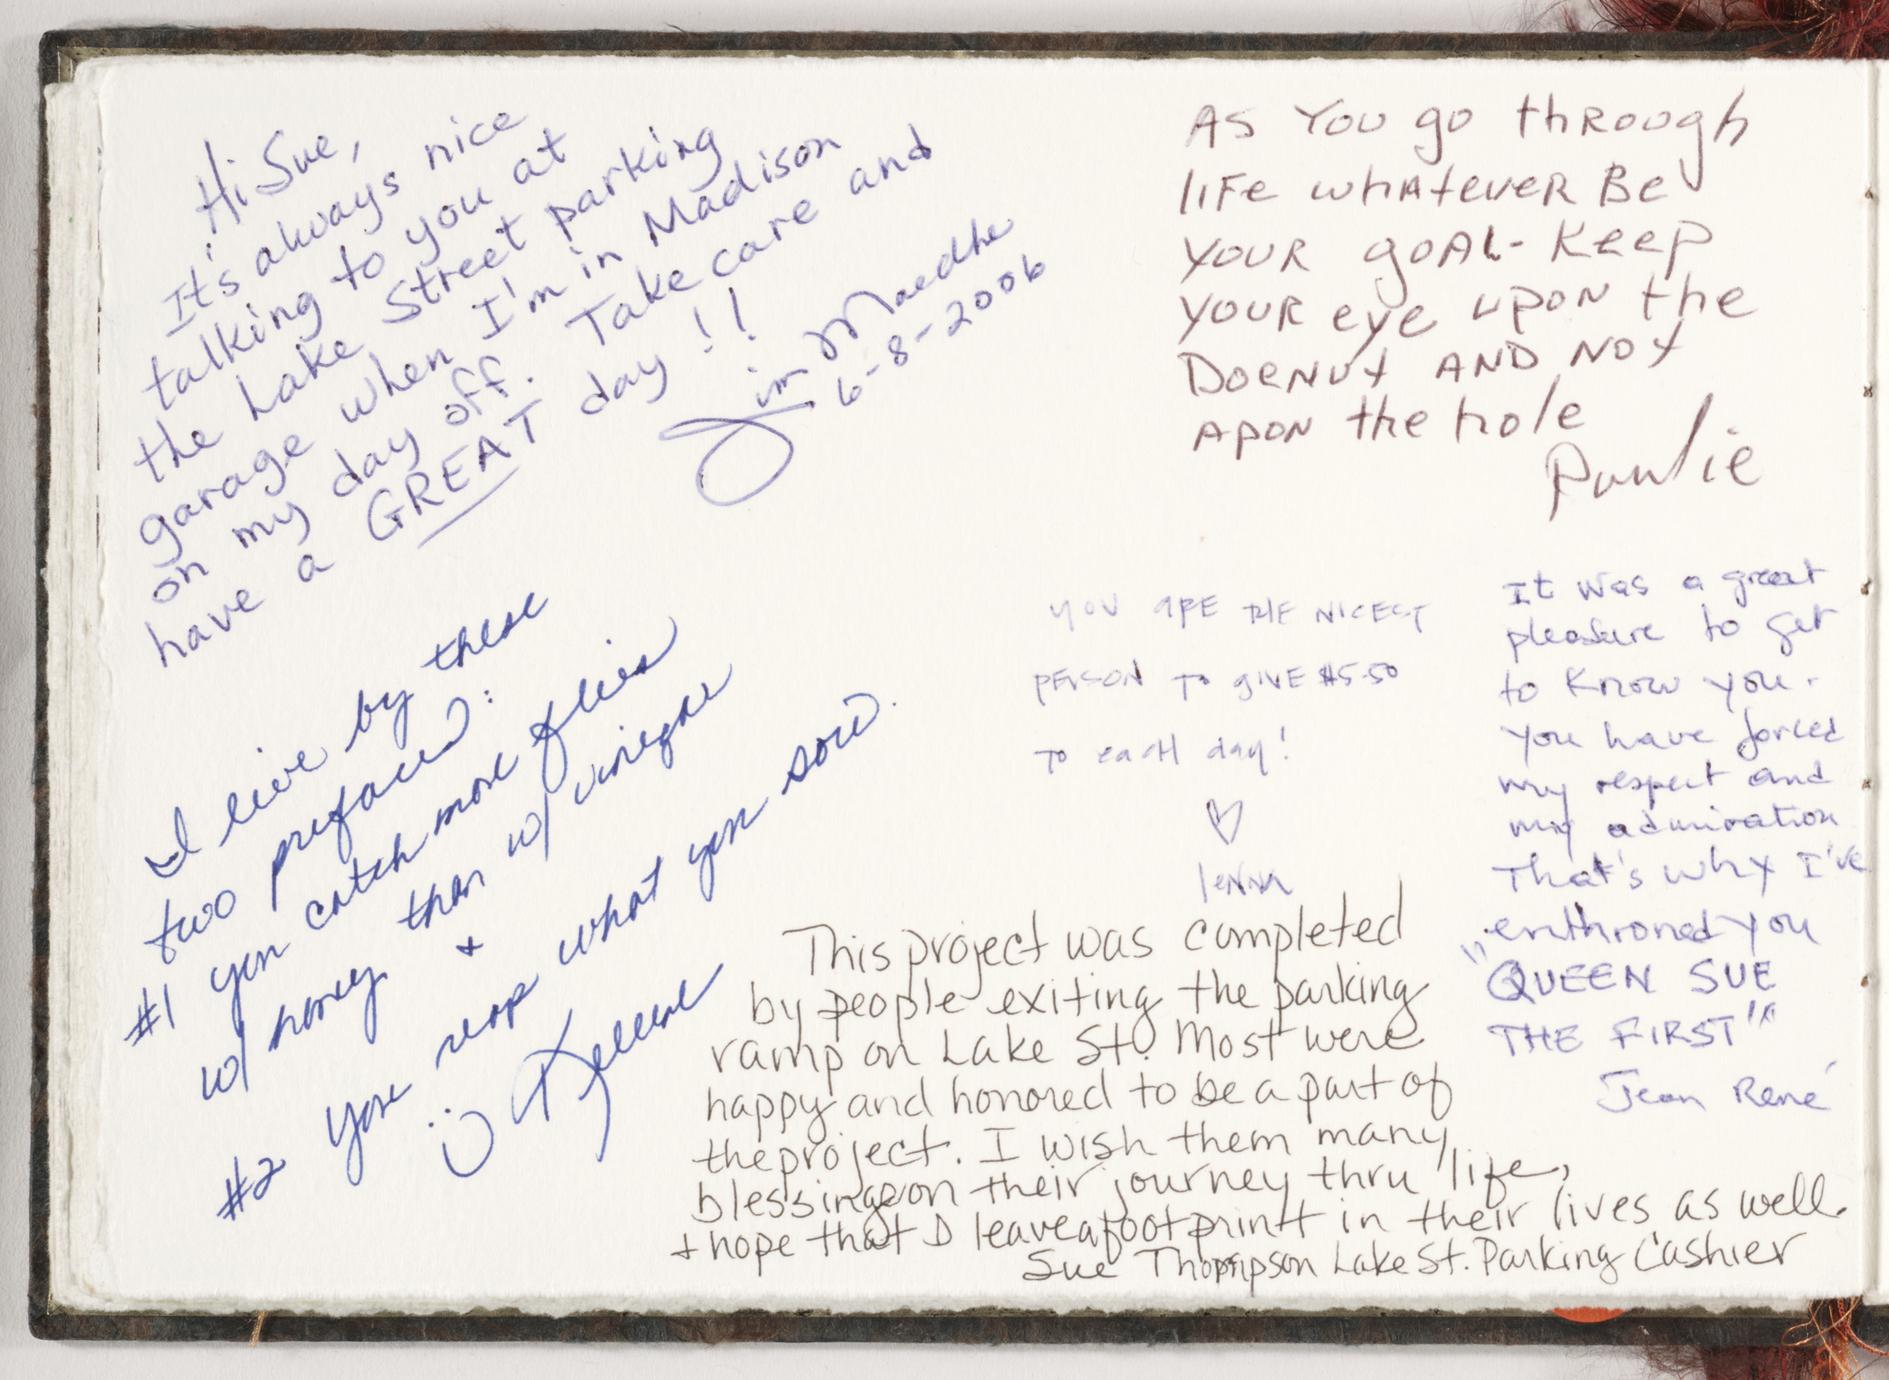 Hi Sue,
It's always nice
talking to you at
the Lake Street parking
garage when I'm in Madison
on my day off. Take care and
have a GREAT day!!
Jim Maedke
6-8-2006
AS YOU go thROUgh
lIFe whAteveR Be
YOUR goAL- Keep
YOUR eye UPON the
DOeNUt AND NOt
APON the hole
Paulie
YOU ARE THE NICEST
PERSON TO GIVE $5.50
TO eacH day!
♡
Jenna
It was a great
pleasure to get
to know you.
You have forced
my respect and
my admiration
That's why I've
enthroned you
"QUEEN SUE
THE FIRST"
Jean René
I live by these
two prefaced:
#1 you catch more flies
w/ honey than w/ vinegar
+
#2 you reap what you sow.
This project was completed
by people exiting the parking
ramp on Lake St. Most were
happy and honored to be a part of
the project. I wish them many
blessings on their journey thru life,
+ hope that I leave a footprint in their lives as well.
Sue Thompson Lake St. Parking Cashier